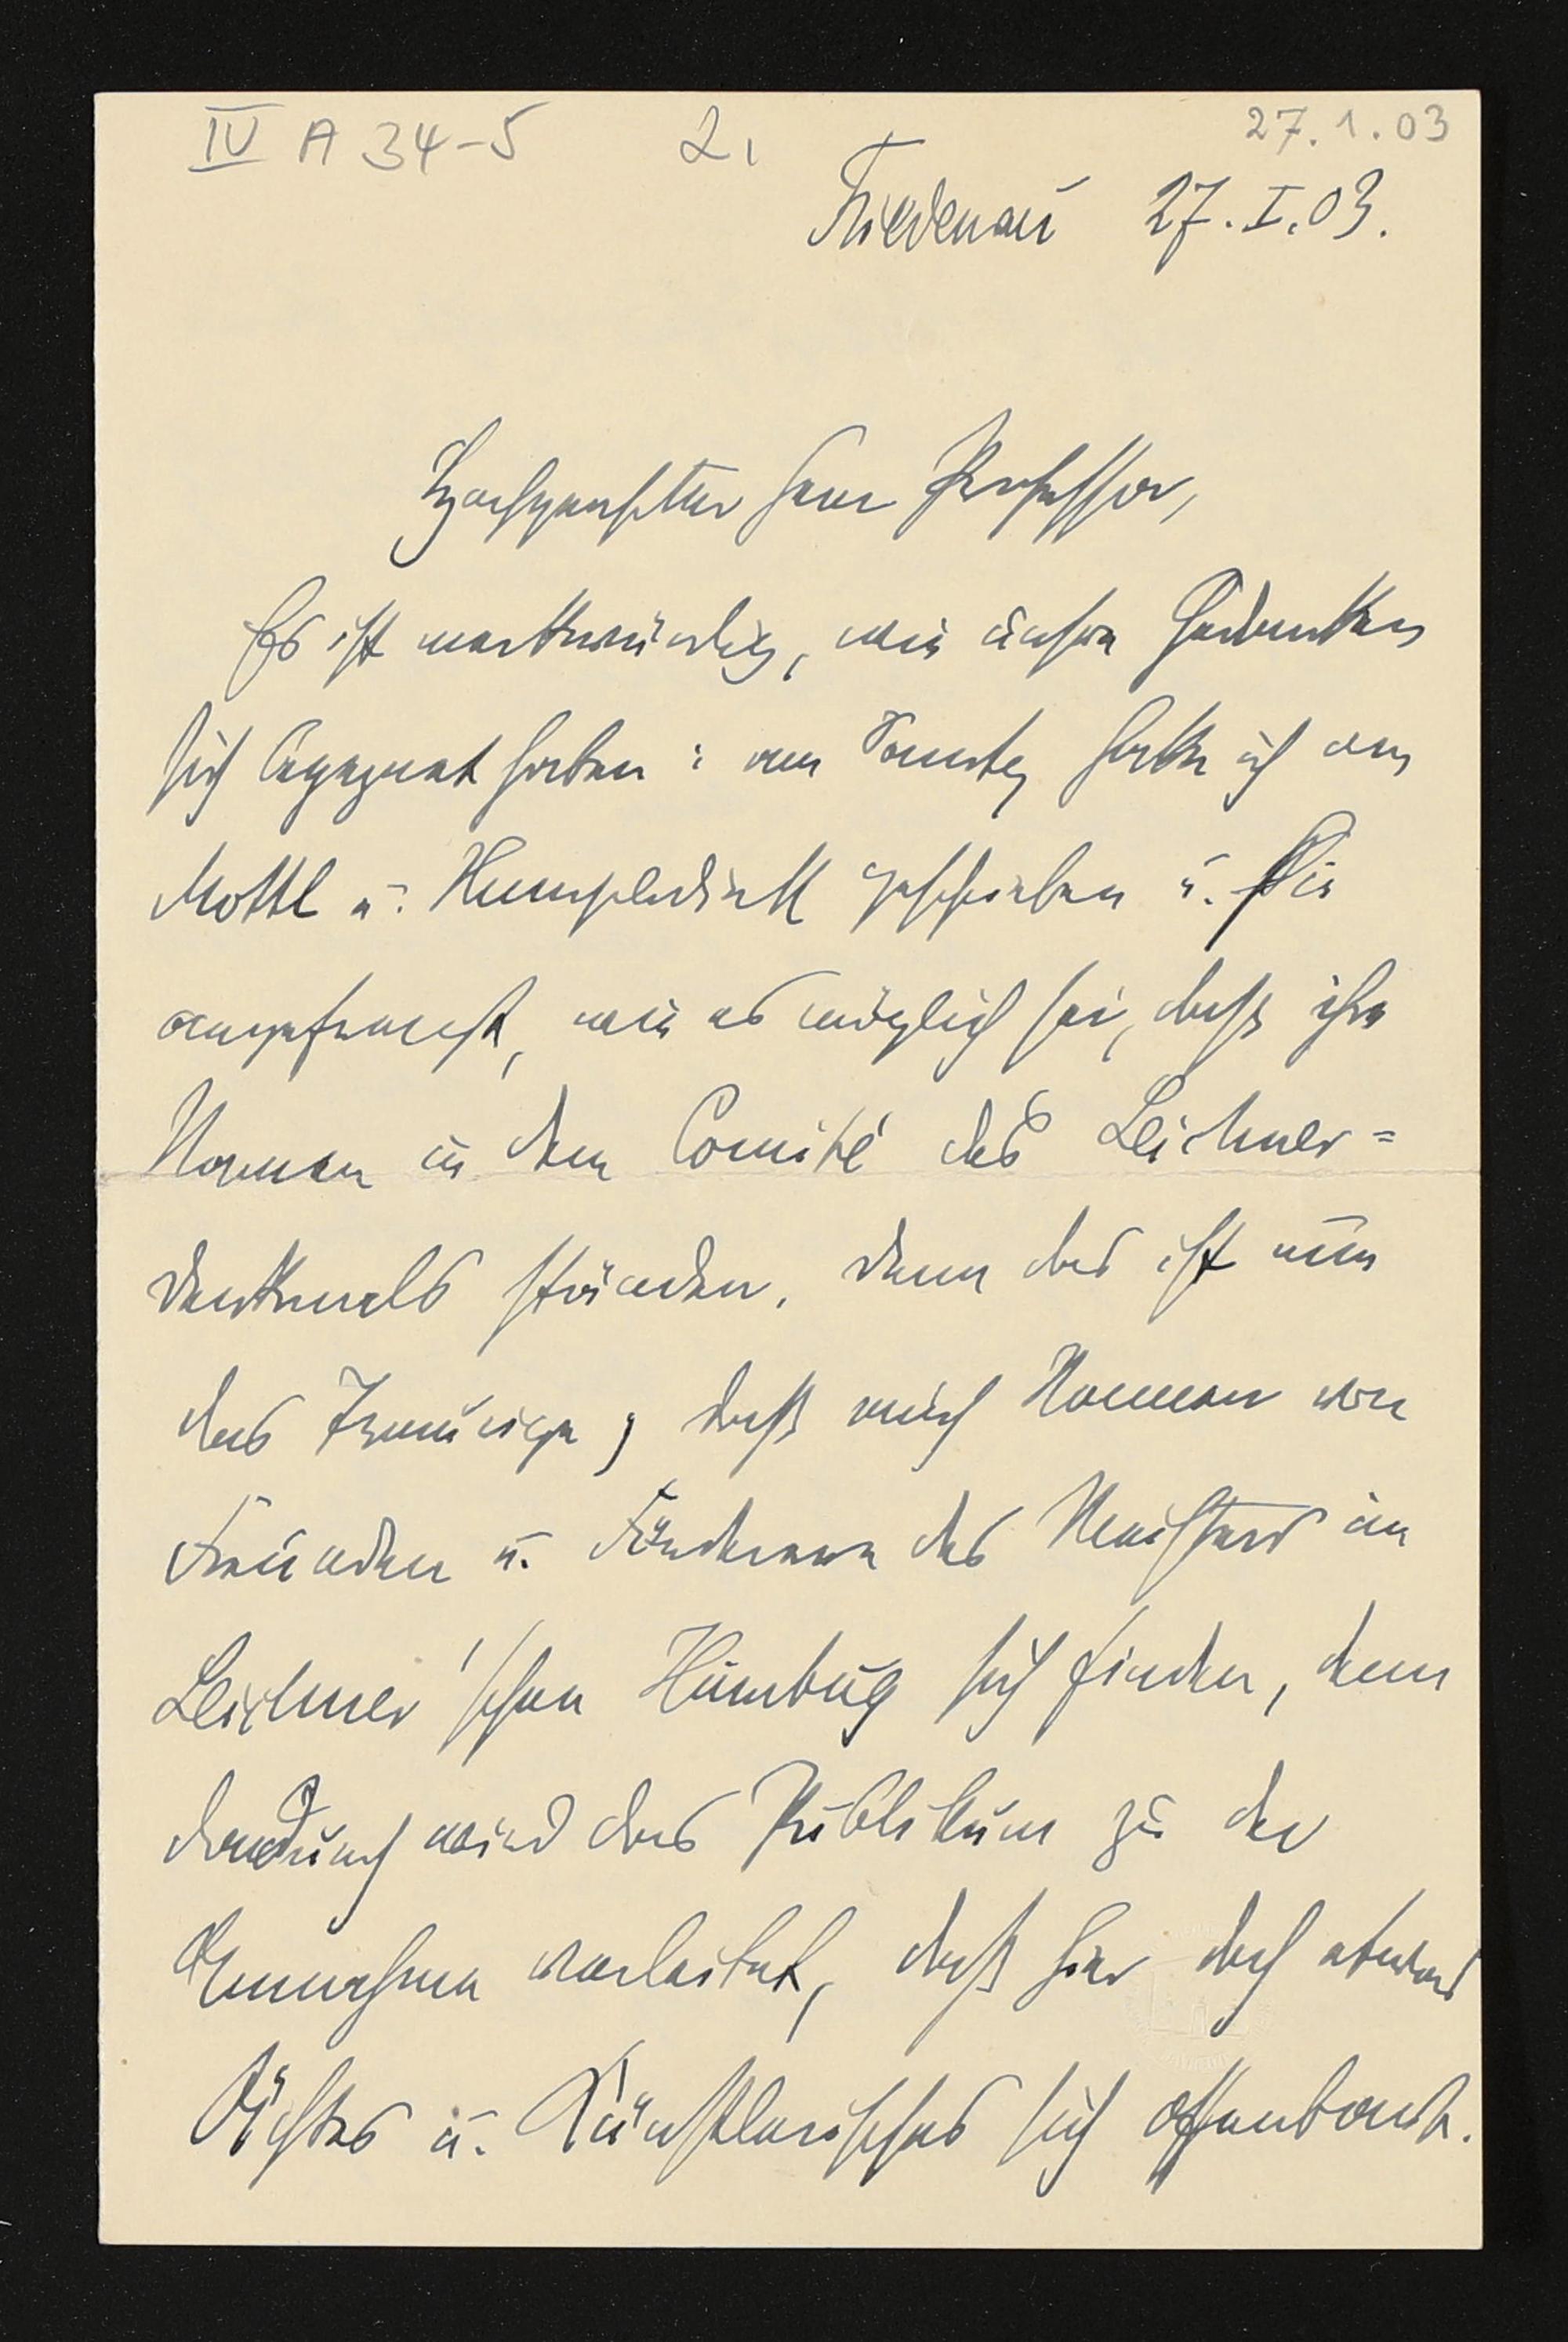 IV A 34-5 2. 27.1.03
Friedenau 27.I.03.
Hochgeehrter Herr Professor,
Es ist merkwürdig, wie unsre Gedanken
sich begegnet haben: am Sonntag hatte ich an
Mottl u. Humperdinck geschrieben u. Sie
angefragt, wie es möglich sei, daß ihre
Namen in dem Comité des Leichner=
denkmals stünden. Denn das ist nun
das Traurige, daß auch Namen von
Freunden u. Förderern des Meisters im
Leichner'schen Humbug sich finden, denn
dadurch wird das Publikum zu der
Annahme verleitet, daß hier doch etwas
Ächtes u. Künstlerisches sich offenbart.